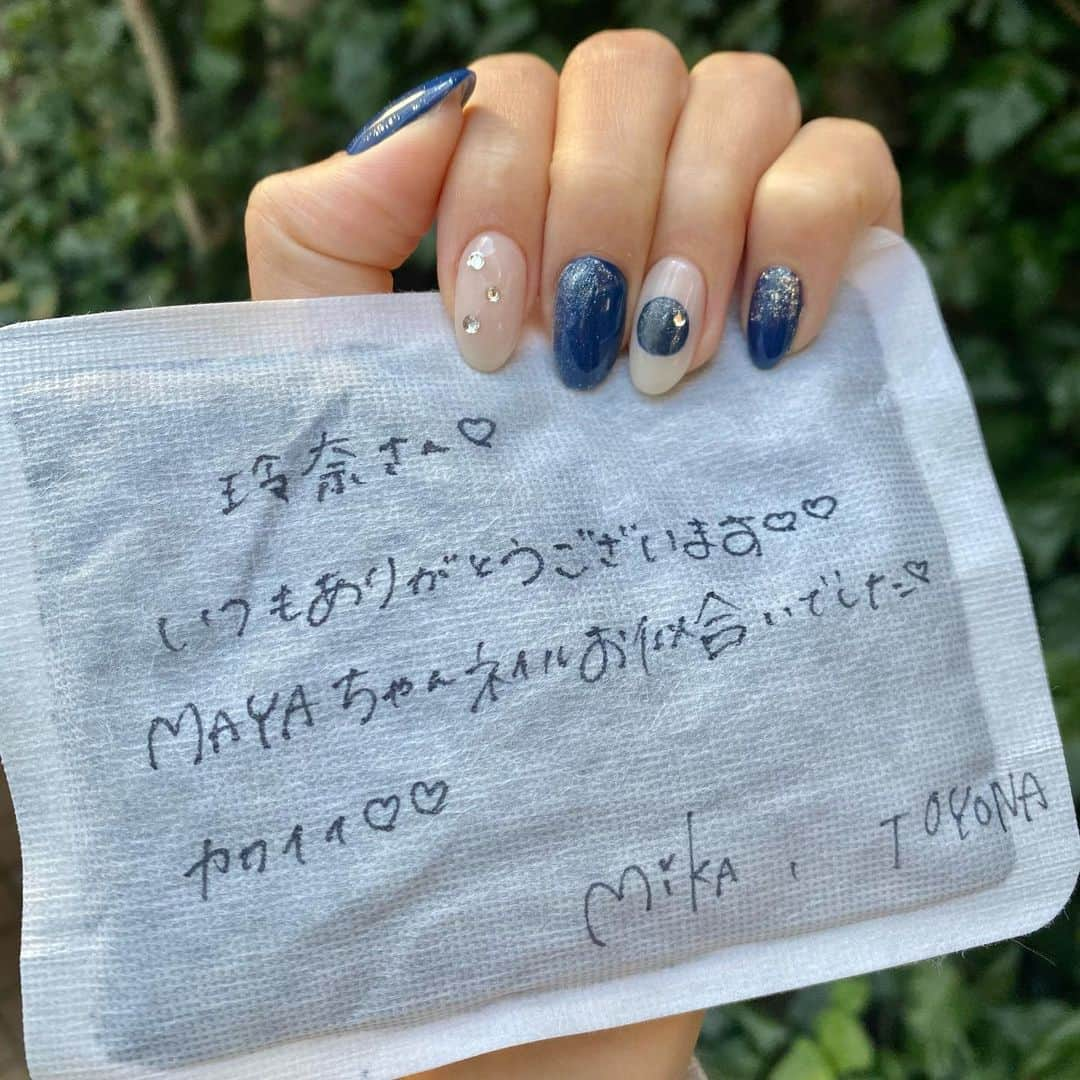 玲奈さん♡
いつもありがとうございます♡♡
MAYAちゃんネイルお似合いでした♡
カワイイ♡♡
Mika, TOYONA